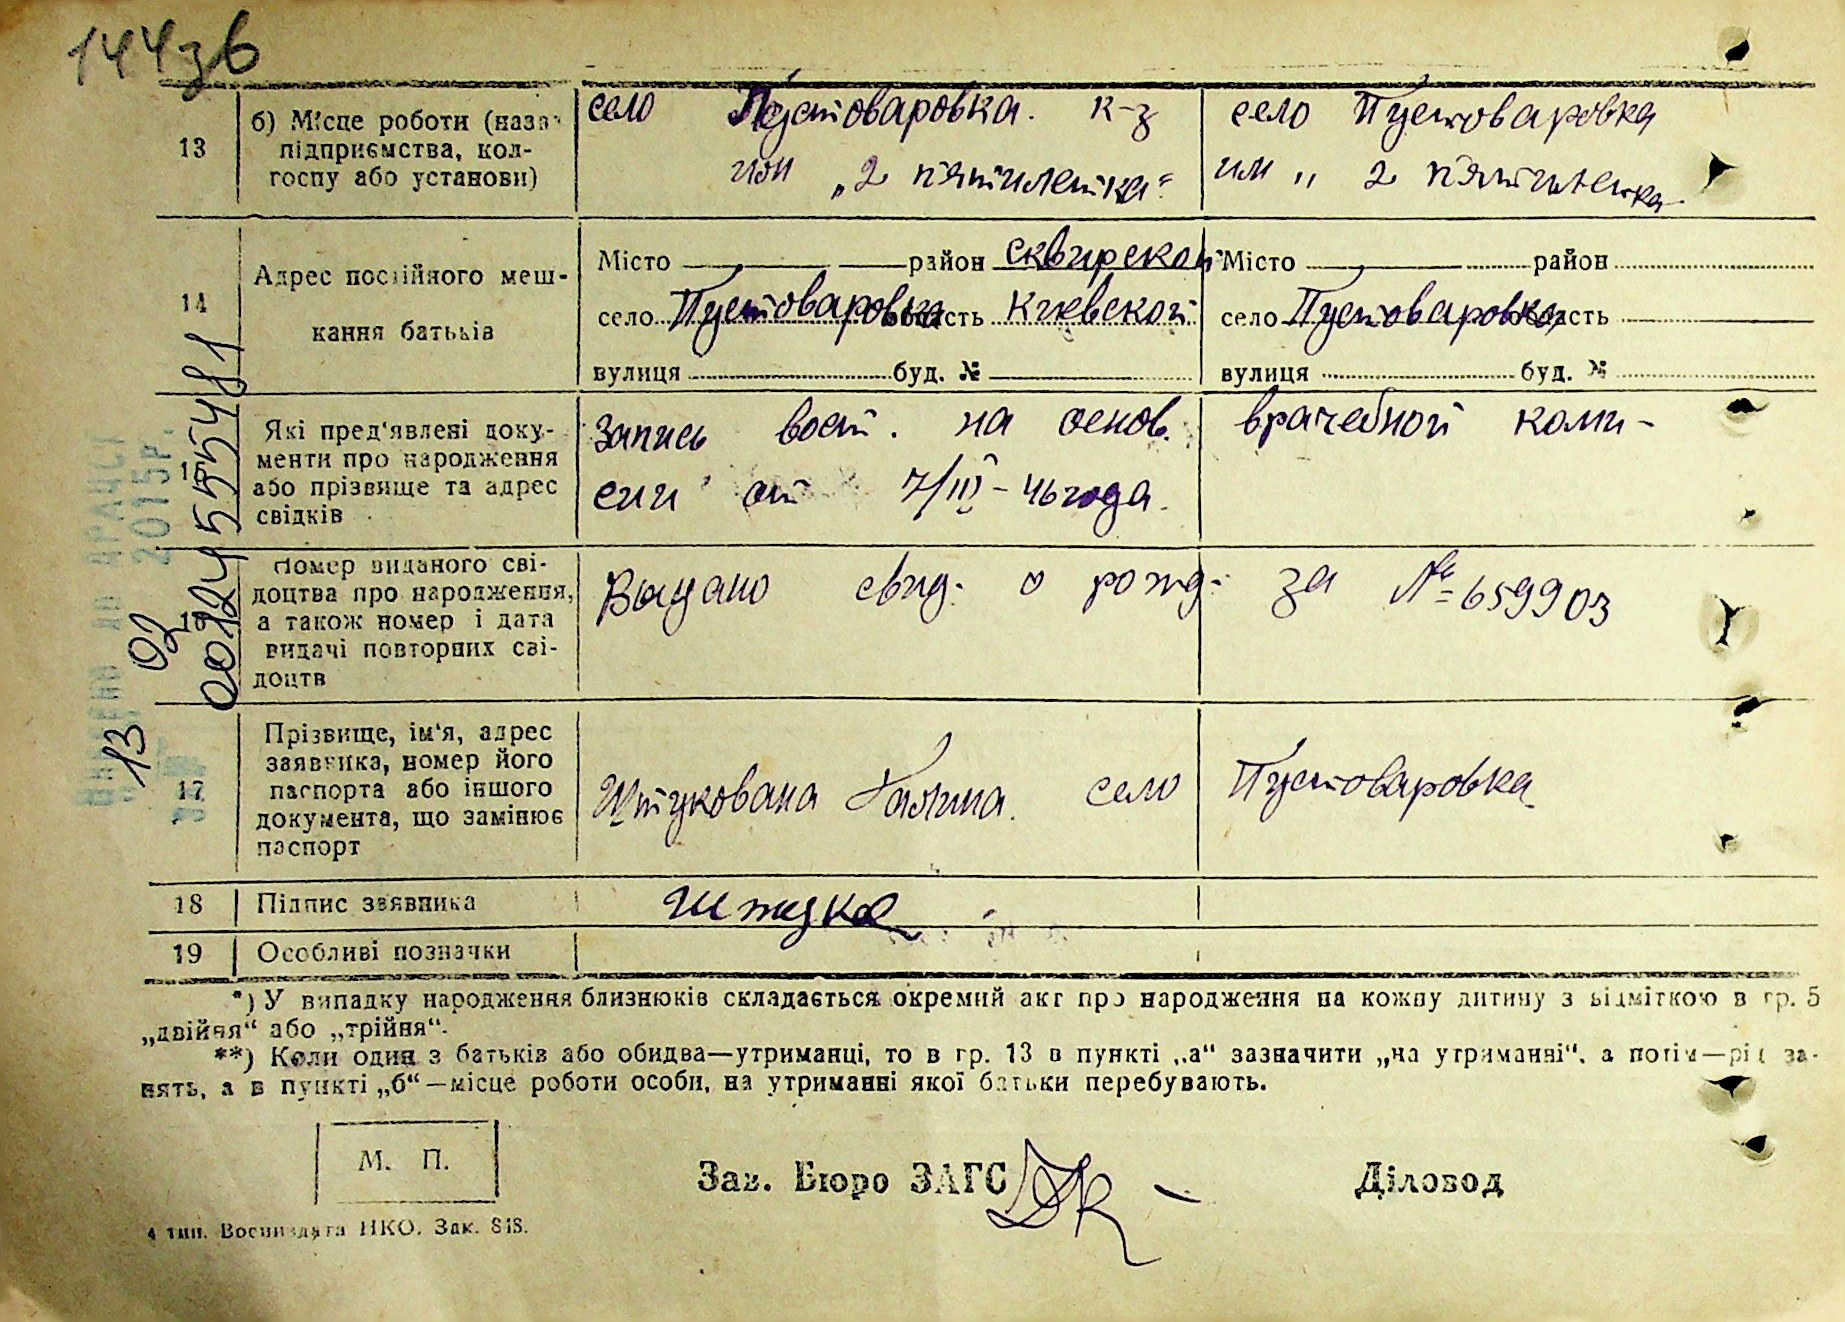 144зв
13
б) Місце роботи (назва
підприємства, кол-
госпу або установи)
село Пустоваровка. к-з
им „2 пятилетка“
село Пустоваровка
им „ 2 пятилетка
14
Адрес постійного меш-
кання батьків
Місто район сквирской
село Пустоваровка область Киевской
вулиця буд. №
Місто район
село Пустоваровка область
вулиця буд. №
15
Які пред'явлені доку-
менти про народження
або прізвище та адрес
свідків
Запись вост. на основ. врачебной коми-
сии от 7/III-46 года.
16
Номер виданого сві-
доцтва про народження,
а також номер і дата
видачі повторних сві-
доцтв
Выдано свид. о рожд. за № 659903
17
Прізвище, ім'я, адрес
заявника, номер його
паспорта або іншого
документа, що замінює
паспорт
Штукована Галина. село Пустоваровка
18
Підпис заявника
Штука
19
Особливі позначки
13 02
00124 555481
2015р.
*) У випадку народження близнюків складається окремий акт про народження на кожну дитину з відміткою в гр. 5
„двійня“ або „трійня“.
**) Коли один з батьків або обидва—утриманці, то в гр. 13 в пункті „а“ зазначити „на утриманні“, а потім—рід за-
нять, а в пункті „б“—місце роботи особи, на утриманні якої батьки перебувають.
М. П.
Зав. Бюро ЗАГС
Діловод
4 тип. Воениздата НКО. Зак. 818.